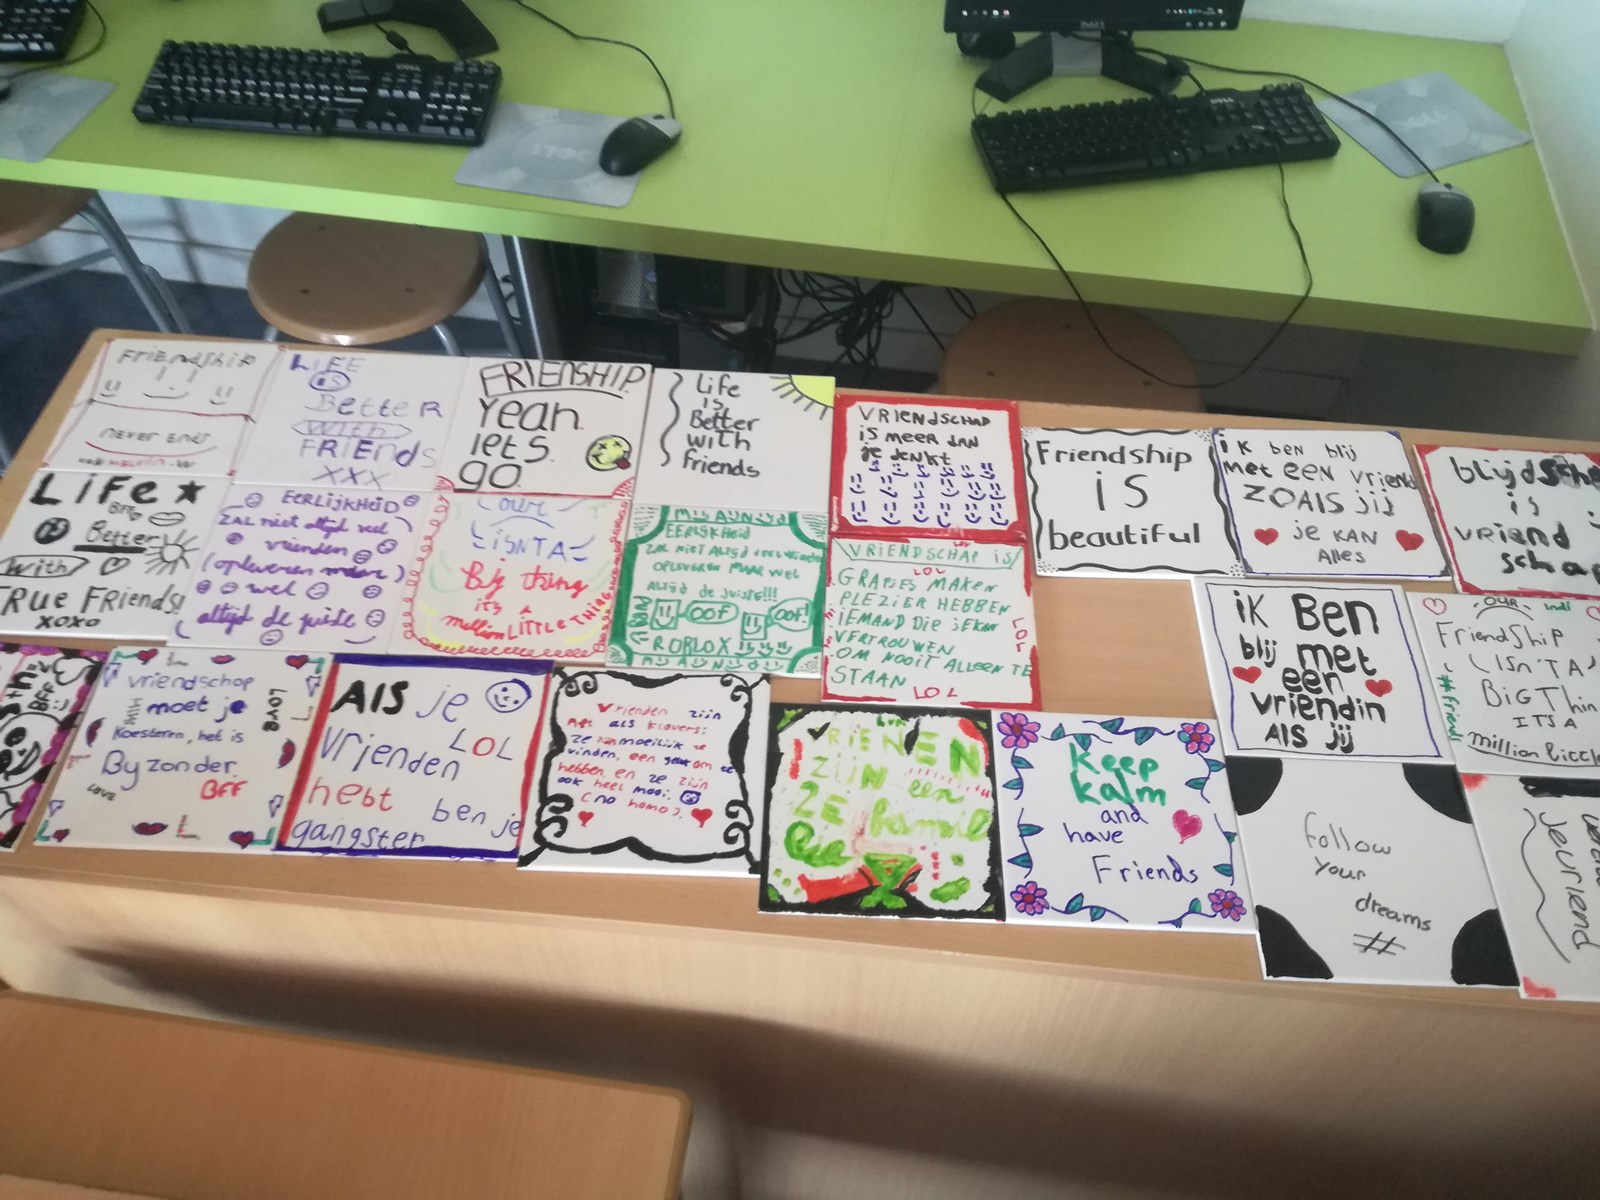 DELL
DELL
DELL
Friendship
never ends
LiFE
is
Better
With
FRIENds
XXX
FRIENSHIP
Yeah.
lets.
go.
Life
is
Better
with
friends
VRIENDSCHAP
is MEER DAN
je denkt
Friendship
is
beautiful
ik ben blij
met een vriend
ZOALS jij
je KAN
Alles
is
vriend
schap
Life
Better
With
TRue FRiends!
xoxo
EERLIJKHEID
ZAL niet altijd veel
vrienden
(opleveren maar)
wel
altijd de juiste
our
isNTA
Big thing
its a
million LITTLE THINGS
MILAUNJJ
EERLIJKHEID
ZAL NIET ALTIJD VEEL
OPLEVEREN MAAR WEL
ALTIJD de JUISTE!!!
OOF
OOF!
ROBLOX
VRIENDSCHAP is
LOL
GRAPJES MAKEN
PLEZIER HEBBEN
IEMAND DIE JE KAN
VERTROUWEN
OM NOOIT ALLEEN TE
STAAN
LOL
LOL
iK Ben
blij met
een
vriendin
Als jij
OUR
FriendShip
isn'TA
BiG Thin
ITS A
million little
#friend
BFF
vriendschap
moet je
Koesteren, het is
Byzonder.
BFF
LOVE
Love
Als je
LOL
vrienden
hebt
ben je
gangster
Vrienden zijn
net als klavers:
ze zijn moeilijk te
vinden, een geluk om te
hebben en ze zijn
ook heel mooi.
(no homo).
VRIENEN
ZIJN een
ZE famil
lie
Keep
kalm
and
have
Friends
follow
your
dreams
#